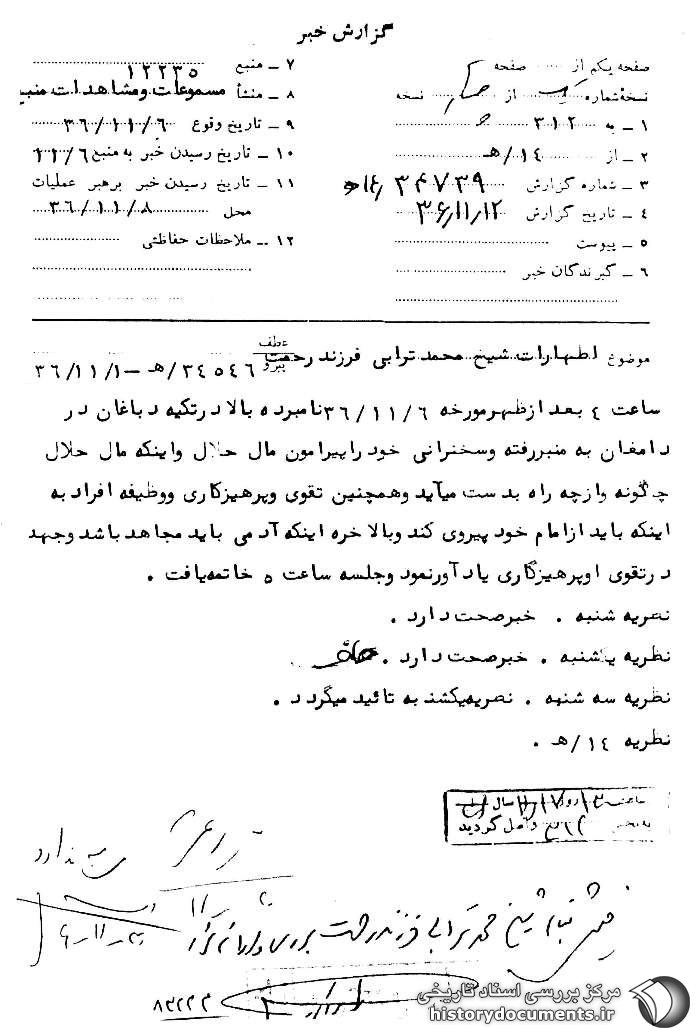 گزارش خبر
صفحه یکم از ..... صفحه
نسخهٔ شماره ..... از ..... نسخه
۱ ــ به ۳۱۲
۲ ــ از ۱٤/هـ
۳ ــ شماره گزارش ۳۴۷۳۹
۴ ــ تاریخ گزارش ۳۶/۱۱/۱۲
۵ ــ پیوست
۶ ــ گیرندگان خبر
۷ ــ منبع ۱۲۲۳۵
۸ ــ منشأ مسموعات ومشاهدات منبع
۹ ــ تاریخ وقوع ۳۶/۱۱/۶
۱۰ ــ تاریخ رسیدن خبر به منبع ۱۱/۶
۱۱ ــ تاریخ رسیدن خبر برهبر عملیات
محل ۳۶/۱۱/۸
۱۲ ــ ملاحظات حفاظتی
موضوع اظهارات شیخ محمد ترابی فرزند رحمت
عطف
پیرو ۳٤٥٤۶/هـ -۳۶/۱۱/۱
ساعت ٤ بعد ازظهرمورخه ۳۶/۱۱/۶ نامبرده بالا درتکیه دباغان در
دامغان به منبررفته وسخنرانی خود راپیرامون مال حلال واینکه مال حلال
چگونه وازچه راه بدست میآید وهمچنین تقوی وپرهیزکاری ووظیفه افراد به
اینکه باید ازامام خود پیروی کند وبالاخره اینکه آدمی باید مجاهد باشد وجهد
درتقوی اوپرهیزگاری یادآورنمود وجلسه ساعت ٥ خاتمه‌یافت .
نظریه شنبه . خبرصحت دارد .
نظریه یکشنبه . خبرصحت دارد .
نظریه سه شنبه . نظریه‌یکشنبه تائید میگردد .
نظریه ۱٤/هـ .
واصل گردید
ندارد
شیخ محمد ترابی فرزند رحمت بررسی و
۸۳۲۳۳
مرکز بررسی اسناد تاریخی
historydocuments.ir